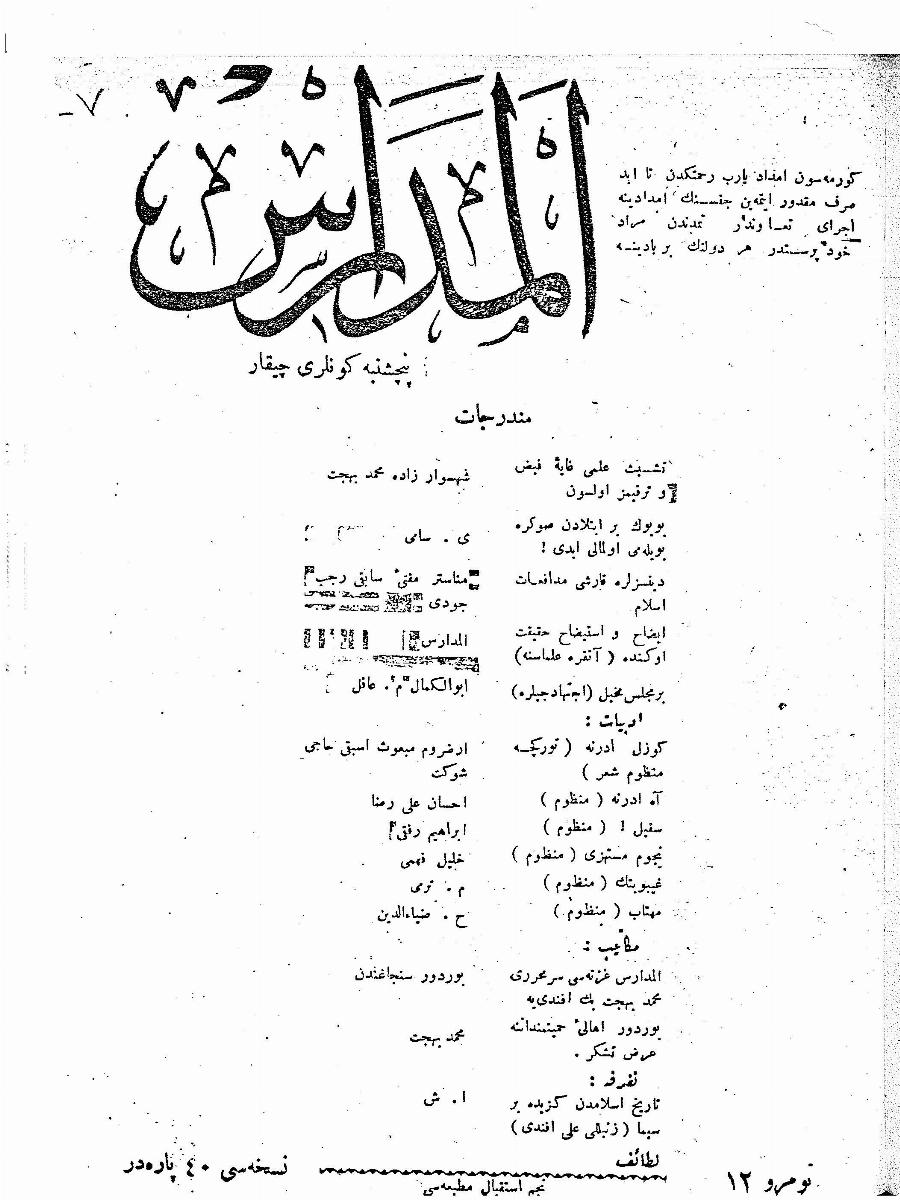 المدارس
كورمه‌سون امداد يارب رحمتكدن تا ابد
صرف مقدور ايتمه‌ين جنسنك امدادينه
اجراى تعاوندر تمدندن مراد
خودپرستدر هر دولتك بربادينه
پنچشنبه كونلرى چيقار
مندرجات
تشبث علمى غايۀ فيض
و ترقيمز اولسون
شهسوار زاده محمد بهجت
بويوك بر ابتلادن صوكره
بويله‌مى اولمالى ايدى !
ى . سامى
دينسزلره قارشى مدافعات
اسلام
مناستر مفتئ سابقى رجب
جودى
ايضاح و استيضاح حقيقت
اوكنده ( آنقره علماسنه )
المدارس
بر مجلس مخيل (اجتهادجيلره)
ابوالكمال م . عاقل
ادبيات :
كوزل ادرنه ( توركجه
منظوم شعر )
ارضروم مبعوث اسبقى حاجى
شوكت
آه ادرنه ( منظوم )
احسان على رضا
سفيل ! ( منظوم )
ابراهيم رفقى
نجوم مستهزى ( منظوم )
خليل فهمى
غيبوبتك ( منظوم )
م . نرمى
مهتاب ( منظوم )
ح . ضياءالدين
مكاتيب :
المدارس غزته‌سى سرمحررى
محمد بهجت بك افندى‌يه
بوردور سنجاغندن
بوردور اهالئ حميتمنداننه
عرض تشكر .
محمد بهجت
تفرقه :
تاريخ اسلامدن كزيده بر
سيما ( زنبللى على افندى )
ا . ش
لطائف
نومرو ١٢
نسخه‌سى ٤٠ پاره‌در
نجم استقبال مطبعه‌سى